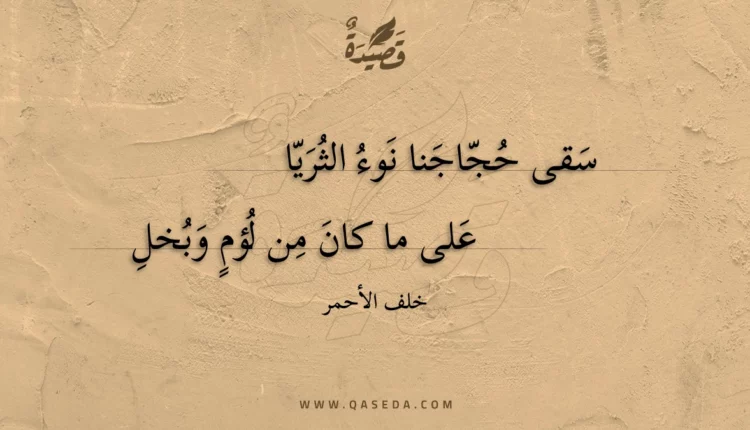 قَصِيْدَةٌ
سَقى حُجّاجَنا نَوءُ الثُرَيّا
عَلى ما كانَ مِن لُؤمٍ وَبُخلِ
خلف الأحمر
WWW.QASEDA.COM